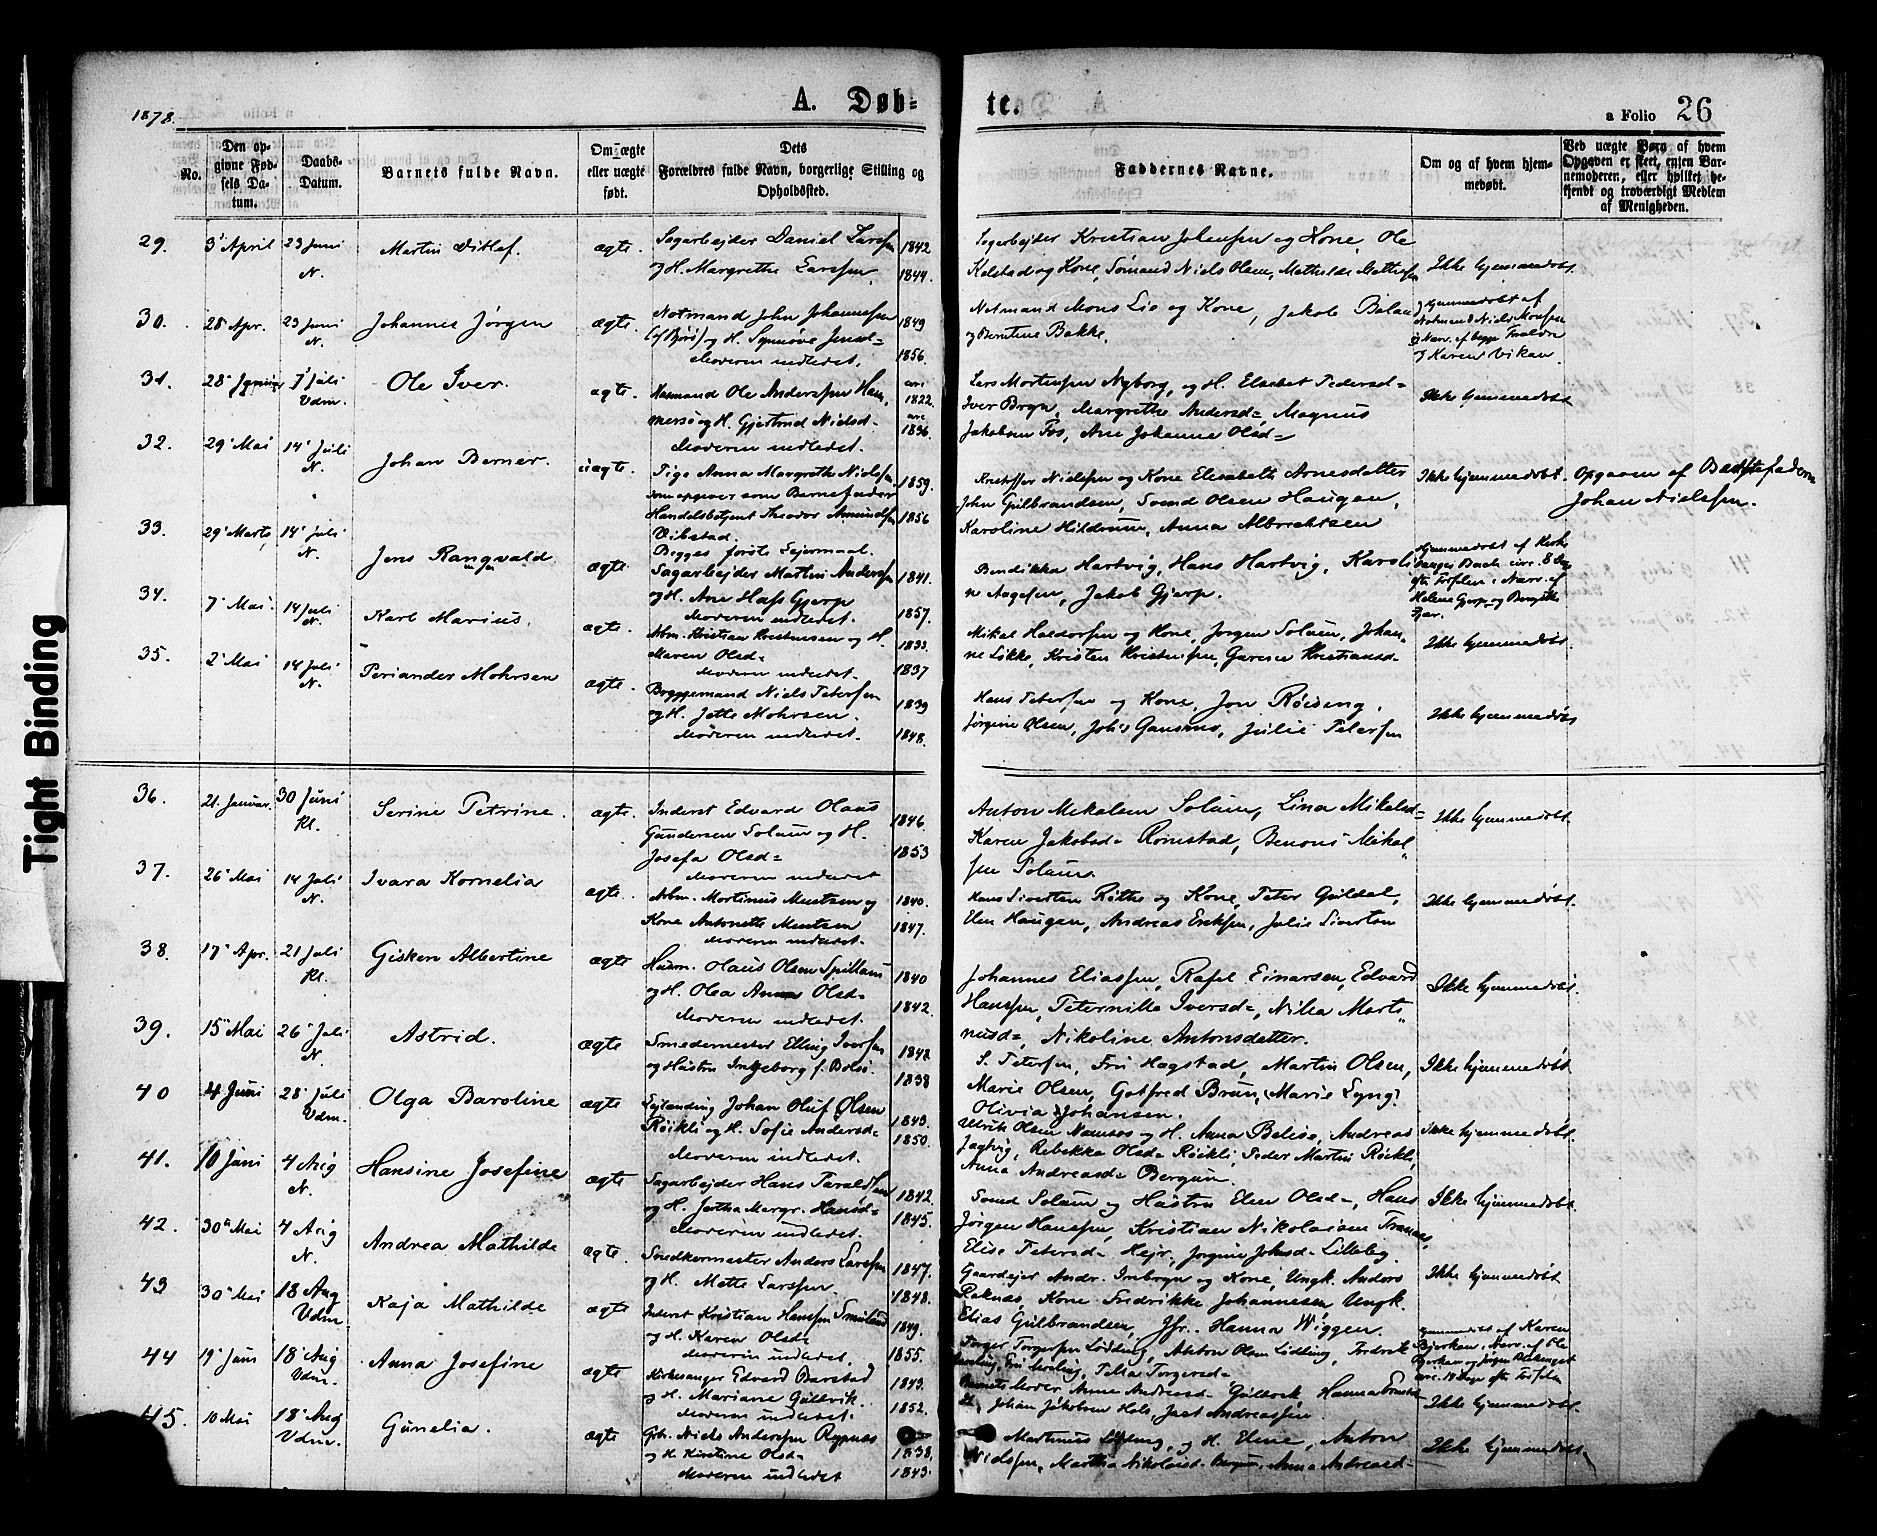 1878.
A. Døb-
te.
a Folio 26
No.
Den op-
givne Fød-
sels Da-
tum.
Daabs-
Datum.
Barnets fulde Navn.
Om ægte
eller uægte
født.
Dets
Forældres fulde Navn, borgerlige Stilling og
Opholdssted.
Faddernes Navne.
Om og af hvem hjem-
medøbt.
Ved uægte Børn af hvem
Opgaven er skeet, enten Bar-
nemoderen, eller hvilket be-
kjendt og troværdigt Medlem
af Menigheden.
29. 3' April 23 Juni N. Martin Ditlef. ægte.
Sagarbejder Daniel Larssen 1842
og H. Margrethe Larssen. 1844.
Sagarbejder Kristian Johensen og Kone, Ole
Kolstad og Kone, Sømand Niels Olsen, Mathilde
Ikke hjemmedøbt.
30. 28' Apr. 23 Juni N. Johannes Jørgen ægte.
Notmand John Johannessen 1849
og H. Synnøve Jensd=
Moderen indledet. 1856.
Notmand Mons Lio og Kone, Jakob
og Berntine Bakke.
hjemmedøbt af
Notmand Niels Monsen
i Nærv. af begge Forældre
og Karen Vikan.
31. 28' 7' Juli Vdm. Ole Iver. ægte.
Ole Anderssen Ham- 1822.
mersø og H. Gjertrud Nielsd= 1836.
Moderen indledet.
Lars Mortensen Nyborg, og H. Elsebet Pedersd=
Iver Bryn, Margrethe Andersd= Magnus
Jakobsen Fos, Ane Johanne Olsd=
Ikke hjemmedøbt.
32. 29' Mai 14' Juli N. Johan Berner. uægte.
Pige Anna Margrethe Nielsen 1859.
som opgiver som Barnefader
Handelsbetjent Theodor Amundsen 1856
Vikstad.
Begges første Lejermaal.
Kristoffer Nielsen og Kone Elisabeth Arnesdatter
John Gulbrandsen, Svend Olsen Haugen,
Karoline Hildrum, Anna Albrechtsen
Ikke hjemmedøbt.
Opgaven af Bedstefaderen
Johan Nielsen.
33. 29' Marts 14' Juli N. Jens Rangvald ægte.
Sagarbejder Martin Anderssen 1841.
og H. Ane Hafs Gjerp
Moderen indledet. 1857.
Bendikka Hartvig, Hans Hartvig, Karoli-
ne Aagesen, Jakob Gjerp.
Hjemmedøbt af Kirke-
sanger Bach circ. 8 Dage
efter Fødselen i Nærv. af
Helene Gjerp og
34. 7' Mai. 14 Juli N. Karl Marius. ægte.
Arbm. Kristian Kristensen og H. 1833.
Maren Olsd=
Moderen indledet. 1837
Mikal Haldorsen og Kone, Jørgen Solum, Johan-
ne Likke, Kristen Kristensen, Gurine Kristiansd=
Ikke hjemmedøbt.
35. 2' Mai 14 Juli N. Periander Mohrsen ægte.
Bryggemand Niels Petersen 1839
og H. Jette Mohrsen.
Moderen indledet. 1848.
Hans Petersen og Kone, Jon Røising,
Jørgine Olsen, Joh's Gansmo, Julie Petersen
Ikke hjemmedøbt
36. 21. Januar. 30 Juni Kl. Serine Petrine. ægte.
Inderst Edvard Olaus 1846.
Gundersen Solum og H.
Josefa Olsd= 1853
Moderen indledet
Anton Mekalsen Solum, Lina Mikalsd=
Karen Jakobsd= Romstad, Benoni Mikal-
sen Solum.
Ikke hjemmedøbt.
37. 26' Mai 14 Juli N. Ivara Kornelia ægte.
Arbm. Mortinus Mentsen og 1840.
Kone Antonette Mentsen 1847.
Moderen indledet.
Hans Sivertsen Røthe og Kone, Peter Guldal,
Elen Haugan, Andreas Eriksen, Julie Sivertsen
Ikke hjemmedøbt.
38. 17' Apr. 21 Juli Kl. Gisken Albertine ægte
Husm. Olaus Olsen Spillum 1840
og H. Olea Anna Olsd= 1842.
Moderen indledet.
Johannes Eliassen, Rafel Einarsen, Edvard
Hanssen, Peternilla Iversd=, Nilla Marti-
nusd=, Nikoline Antonsdatter.
Ikke hjemmedøbt.
39. 15' Mai 26' Juli N. Astrid. ægte
Smedemester Elling Iversen 1848.
og Hustru Ingeborg f. Bolsø. 1838
S. Petersen, Fru Hagstad, Martin Olsen,
Marie Olsen, Gotfred Bruun, Marie Lyng,
Olivia Johansen.
Ikke hjemmedøbt
40 4 Juni 28' Juli Vdm. Olga Baroline ægte
Johan Oluf Olsen 1843.
Røikli og H. Sofie Andersd= 1850.
Moderen indledet.
Ulrik Olsen Namsos og H. Anna Belise, Andreas
Jagtvig, Rebekka Olsd= Røikli, Peder Martin Røikli,
Anna Andreasd= Bergum.
Ikke hjemmedøbt.
41. 10 Juni 4 Aug N. Hansine Josefine ægte
Sagarbejder Hans Taraldsen 1842.
og H. Jertha Margr. Hansd= 1845.
Moderen indledet.
Svend Solum og Hustru Elen Olsd=, Hans
Jørgen Hanssen, Kristian Nikolaisen Tranaas,
Elise Petersd= Hejr, Jorgine Johnsd= Lilleby
Ikke hjemmedøbt.
42. 30' Mai 4 Aug N. Andrea Mathilde ægte.
Snedkermester Anders Larssen 1847.
og H. Mette Larssen. 1848.
Gaardejer Andr. Inbryn og Kone, Ungk. Anders
Raknes, Kone Fredrikke Johannesen, Ungk.
Elias Gulbrandsen, Jfr. Hanna Wiggen.
Ikke hjemmedøbt.
43 30' Mai 18 Aug Vdm. Kaja Mathilde ægte
Inderst Kristian Hanssen Smineland 1849.
og H. Karen Olsd=
Moderen indledet. 1855.
Torger Torgersen Lødding, Anton Olsen Lødding, Fredrik
Torgersd=
hjemmedøbt af Karen
Bjørken, i Nærv. af Ole
Bjørken og Jørgen
circ. 14 Dage eft. Fødselen
44 19' Juni 18' Aug Vdm. Anna Josefine ægte
Kirkesanger Edvard Barstad 1843.
og H. Mariane Gulsvik. 1852.
Moderen indledet.
Barnets Moder, Anne Andreasd= Gulsvik Hanna
Johan Jakobsen Hals, Andreassen.
Ikke hjemmedøbt.
45. 10 Mai 18' Aug Vdm. Gunelia. ægte
Gbr. Niels Anderssen Rypnes 1838.
og H. Kirstine Olsd= 1843.
Moderen indledet
Martinus Lydeng, og H. Eline, Anton
Nielssen, Martha Nikolaisd= Bergum, Anna Andreasd=
Ikke hjemmedøbt.
Tight Binding